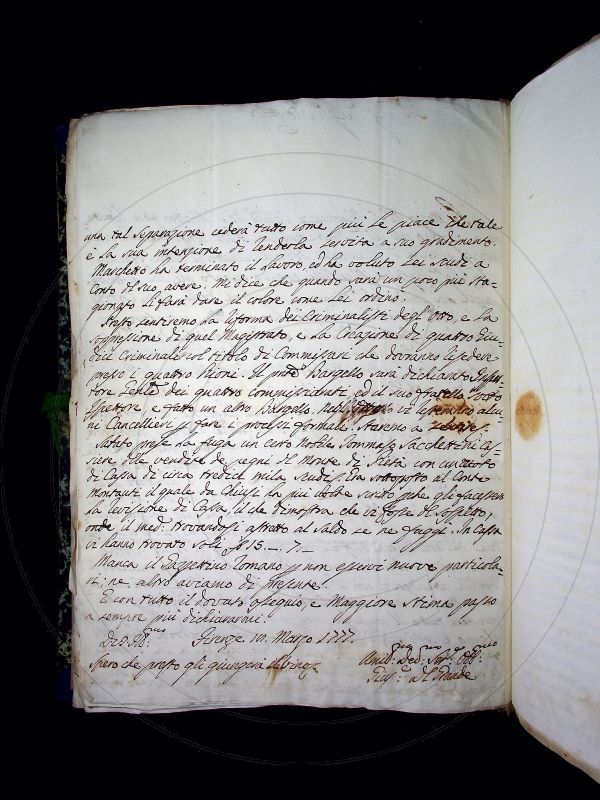 una tal separazione cederà tutto come più Le piace che tale
è la sua intenzione di renderla servita a suo gradimento.
Marchetto ha terminato il lavoro, ed ha voluto sei scudi a
conto del suo avere. Mi dice che quando sarà un poco più sta-
gionato li farà dare il colore come Lei ordinò.
Presto sentiremo la riforma dei Criminalisti degl'Otto, e la
soppressione di quel Magistrato, e la Creazione di quattro Giu-
dici Criminali col titolo di Commissari che dovranno risedere
presso i quattro Rioni. Il Bargello sarà dichiarato Ispet-
tore dei quattro commissariati, ed il suo fratello Sotto
Ispettore, e fatto un altro Bargello. vi alcu-
ni Cancellieri p fare i processi formali. Staremo a
Sabato prese la fuga un certo notele Tommaso Sacchettini Cas-
siere delle vendite de pegni del Monte di Pietà con un vuoto
di Cassa di circa tredici mila scudi. Era sottoposto al Conte
Montauti il quale da Chiusi ha più volte scritto pche gli facessero
la revisione di Cassa, il che dimostra che vi fosse del sospetto,
onde il med. trovandosi astretto al saldo se ne fuggì. In Cassa
vi hanno trovato soli 15. _ . 7. _
Manca il Gazzettino romano p non esservi nuove particola-
ri; ne altro aviamo di presente.
E con tutto il dovuto ossequio, e maggiore stima passo
a sempre più dichiararmi.
Firenze 10. Marzo 1777.
Spero che presto gli giungerà
Umil. Dev. Ser. Obb.
Gius. Del